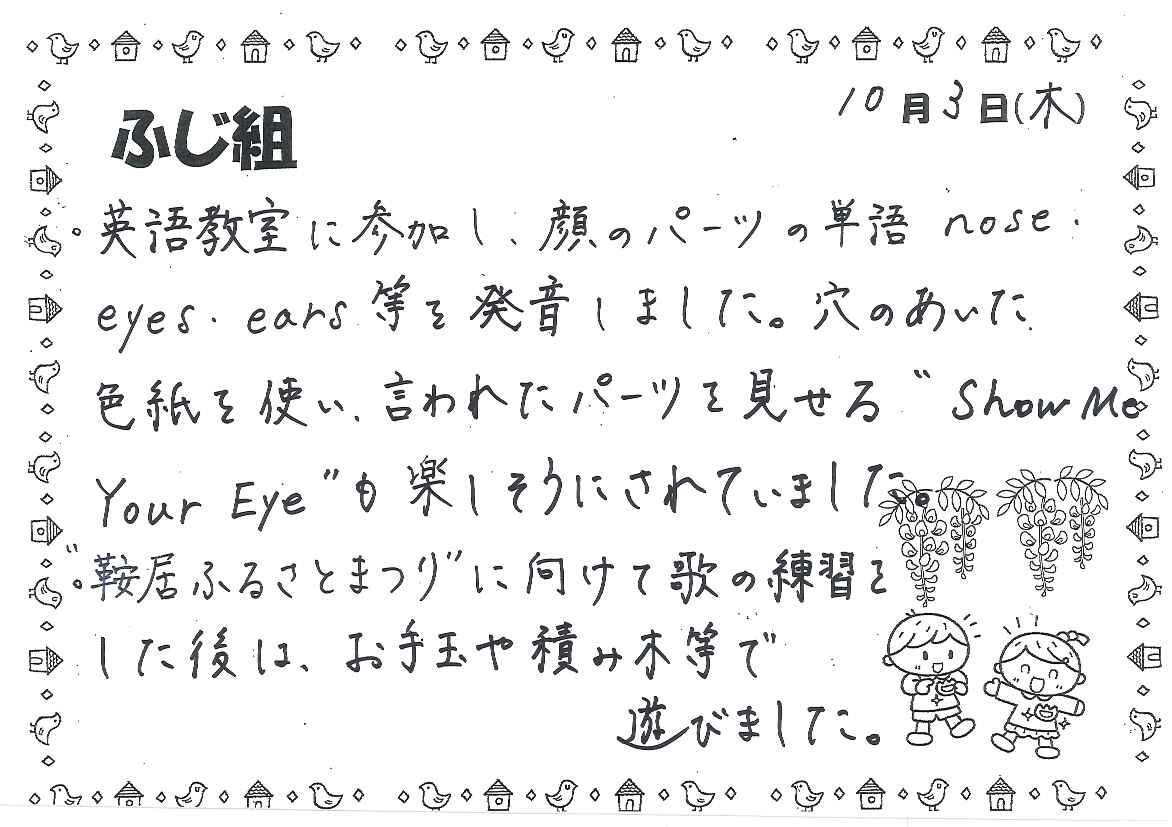 10月3日(木)
ふじ組
。英語教室に参加し、顔のパーツの単語 nose・
eyes・ears等を発音しました。穴のあいた
色紙を使い、言われたパーツを見せる"Show Me
Your Eye"も楽しそうにされていました。
。"鞍居ふるさとまつり"に向けて歌の練習を
した後は、お手玉や積み木等で
遊びました。